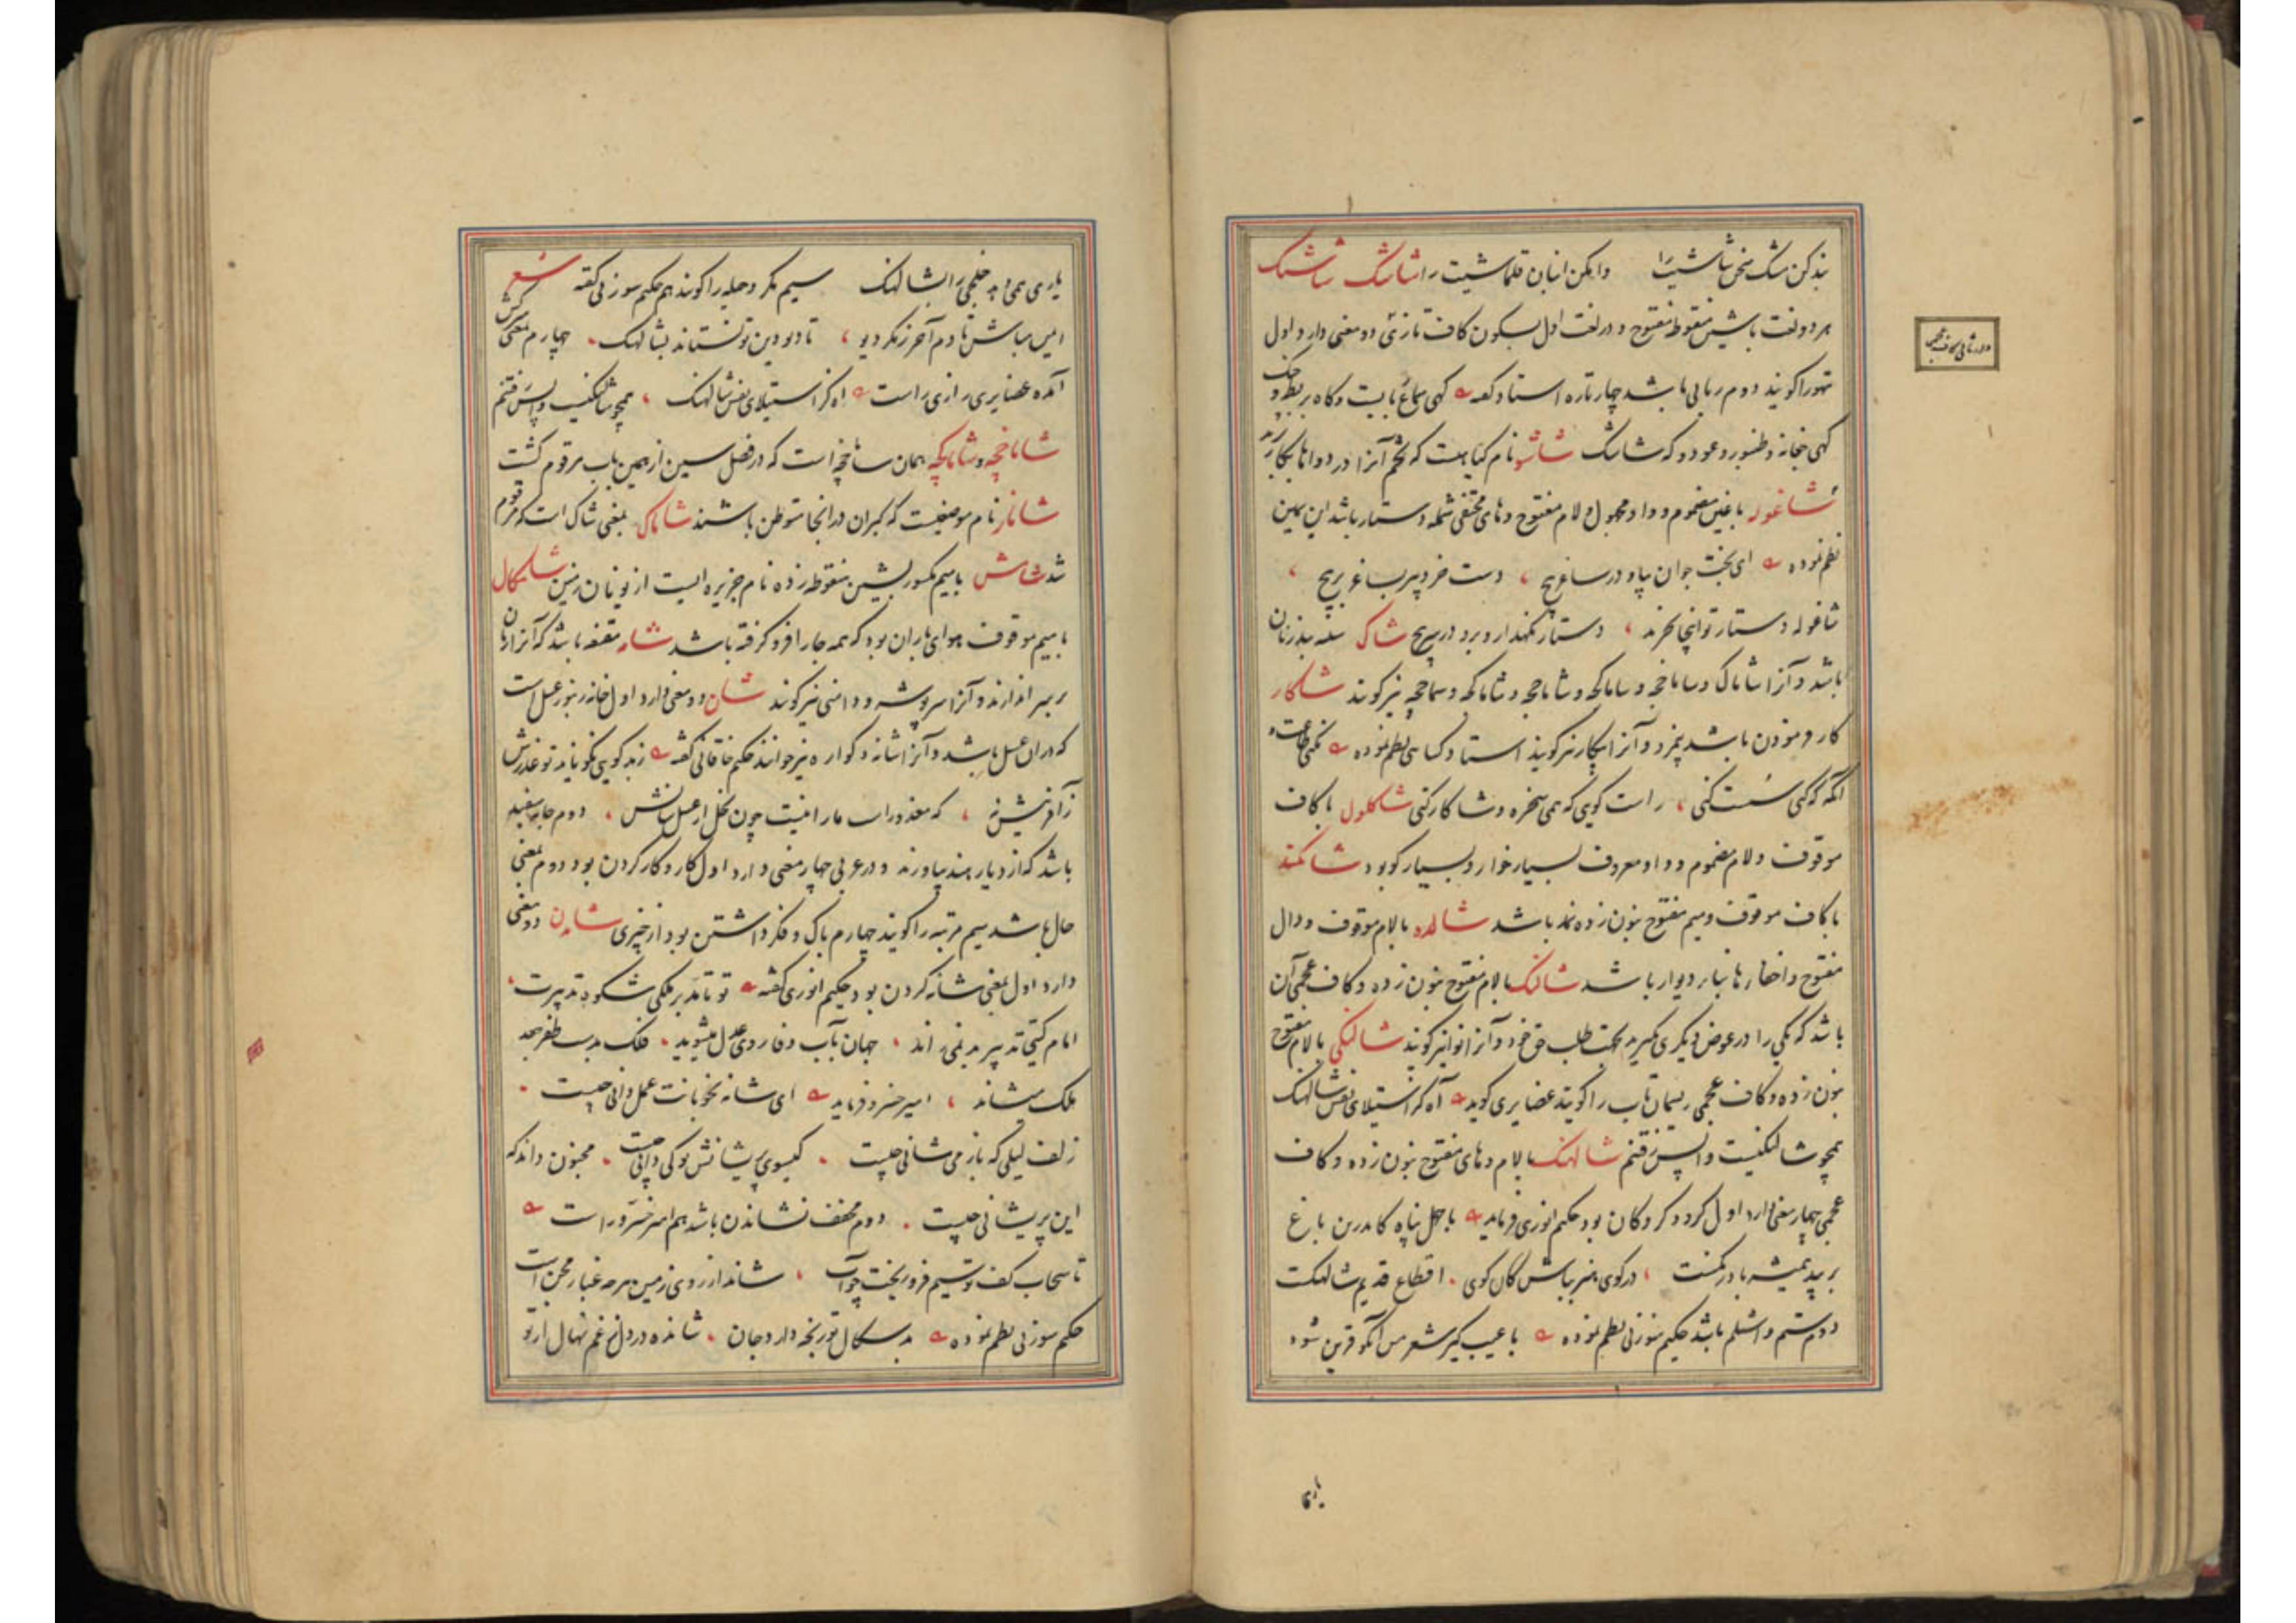 بند کن سنگ سخن شاشیت را وابکن انبان قلماشیت را شاشک شاشنگ
هر دو لغت باشین منقوطه مفتوح و در لغت اول بسکون کاف تازی دو معنی دارد اول
در ثانی کاف عجمی
تهو را گویند دوم ربابی باشد چهار تاره استاد گفته گهی سماع زنی گاه بربط و چنگ
گهی چغانه و طنبور و عود و که شاشک شاشو نام گیاهیست که تخم آنرا در دواها بکار برند
شاغوله با غین مضموم و واو مجهول و لام مفتوح و های مختفی شمله دستار باشد ابن یمین
نظم نموده ای بخت جوان بیا و در ساغر پیچ دست خرد پیر بساغر پیچ
شاغوله دستار تو اینجا نخرند دستار نگهدار و برو در سر پیچ شاک سینه بند زنان
باشد و آنرا شاماک و ساماخچه و ساماکچه و شاماخچه و شاماکچه و سماخچه نیز گویند شاکار
کار فرمودن باشد بیمزد و آنرا بیکار نیز گویند استاد کسائی نظم نموده نکنی طاعت و
آنگه که کنی سست کنی راست گویی که همی سخره و شاکار کنی شاکلول با کاف
موقوف و لام مضموم و واو معروف بسیار خوار و بسیار گو بود شاکمند
با کاف موقوف و میم مفتوح بنون زده نمد باشد شالده بالام موقوف و دال
مفتوح و اخفاء ها بنای دیوار باشد شالنگ بالام مفتوح بنون زده و کاف عجمی آن
باشد که یکی را در عوض دیگری گیرند بجهت طلب حق خود و آنرا نوا نیز گویند شالنگی بالام مفتوح
بنون زده و کاف عجمی ریسمان تاب را گویند غضایری گوید آه کز استیلای نفس شالهنگ
همچو شالنگیست واپس رفتنم شالهنگ بالام و های مفتوح بنون زده و کاف
عجمی چهار معنی دارد اول گرو و گروگان بود حکیم انوری فرماید با جهل پناه کاندرین باغ
بر بید همیشه بادرنگست در کوی هنر مباش کان کوی اقطاع قدیم شالهنگست
دوم ستم و اشتلم باشد حکیم سوزنی نظم نموده با عیب گیر شعر من آنگو قرین شود
یاری
یاری همی دهد خلجی را بشالهنگ سیم مکر و حیله را گویند هم حکیم سوزنی گفته شعر
ایمن مباش تا دم آخر ز مکر دیو تا دیو دین تو نستاند بشالهنگ چهارم بمعنی سرکش
آمده غضایری رازی راست اه کز استیلای نفس شالهنگ همچو شالنگیست واپس رفتنم
شاماخچه و شاماکچه همان ساماخچه است که در فصل سین از همین باب مرقوم گشت
شامار نام موضعیست که گبران در آنجا متوطن باشند شاماک بمعنی شاک است که مرقوم
شد شامس بامیم مکسور بشین منقوطه زده نام جزیره ایست از یونان زمین شامکال
بامیم موقوف هوای باران بود که همه جا را فرو گرفته باشد شامه مقنعه باشد که آنرا زنان
بر سر اندازند و آنرا سرپوشه و دامنی نیز گویند شان دو معنی دارد اول خانه زنبور عسل است
که در ان عسل باشد و آنرا شانه و کواره نیز خوانند حکیم خاقانی گفته زبد گویی نکو ناید تو عذرش
ز آفرینش نه که معذورست مار ار نیست چون نحل از عسل شانش دوم جامه سفید
باشد که از دیار هند بیاورند و در عربی چهار معنی دارد اول کار و کار کردن بود دوم بمعنی
حال باشد سیم مرتبه را گویند چهارم باک و فکر داشتن بود از چیزی شانیدن دو معنی
دارد اول بمعنی شانه کردن بود حکیم انوری گفته تو تا تدبیر ملکی شکوه تدبیرت
امام گیتی تدبیر بد نمی‌راند جهان بآب وفا روی عدل میشوید فلک بدست ظفر جعد
ملک میشاند امیر خسرو فرماید ای شانه نخوبانت عمل دانی چیست
زلف لیلی که باز می شانی چیست گیسوی پریشانش تو کی دانی چیست مجنون داند که
این پریشانی چیست دوم مخفف نشاندن باشد هم امیر خسرو راست
تا سحاب کف تو سیم فرو ریخت چو آب شاند از روی زمین هر چه غبار محن است
حکیم سوزنی نظم نموده بد سگال تو رنجه دارد جان شانده در دل غم نهال از تو